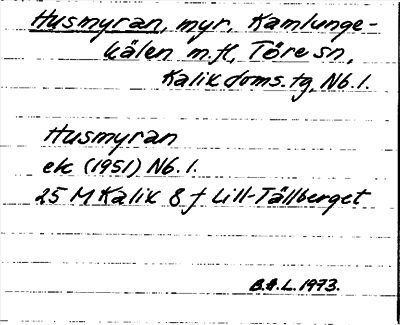 Husmyran, myr, Kamlunge-
kälen m.fl., Töre sn,
Kalix doms.tg, Nb. l.
Husmyran
ek (1951) Nb. l.
25 M Kalix 8 f Lill-Tällberget
B.A.L. 1973.